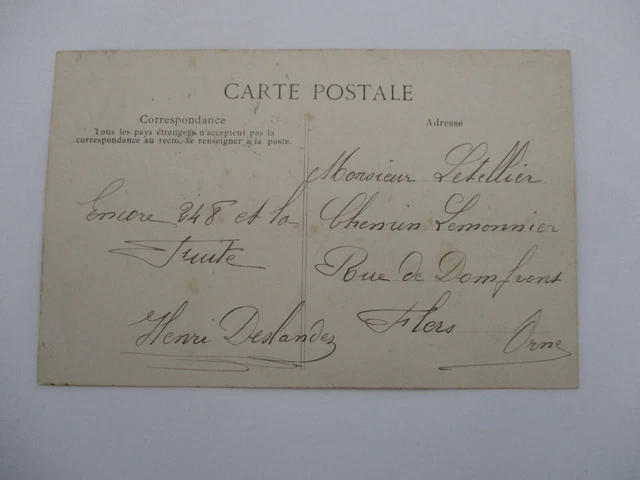 CARTE POSTALE
Correspondance
Tous les pays étrangers n'acceptent pas la
correspondance au recto, se renseigner à la poste.
Encore 248 et la
Fuite
Henri Deslandes
Adresse
Monsieur Letellier
Chemin Lemonnier
Rue de Domfront
Flers
Orne